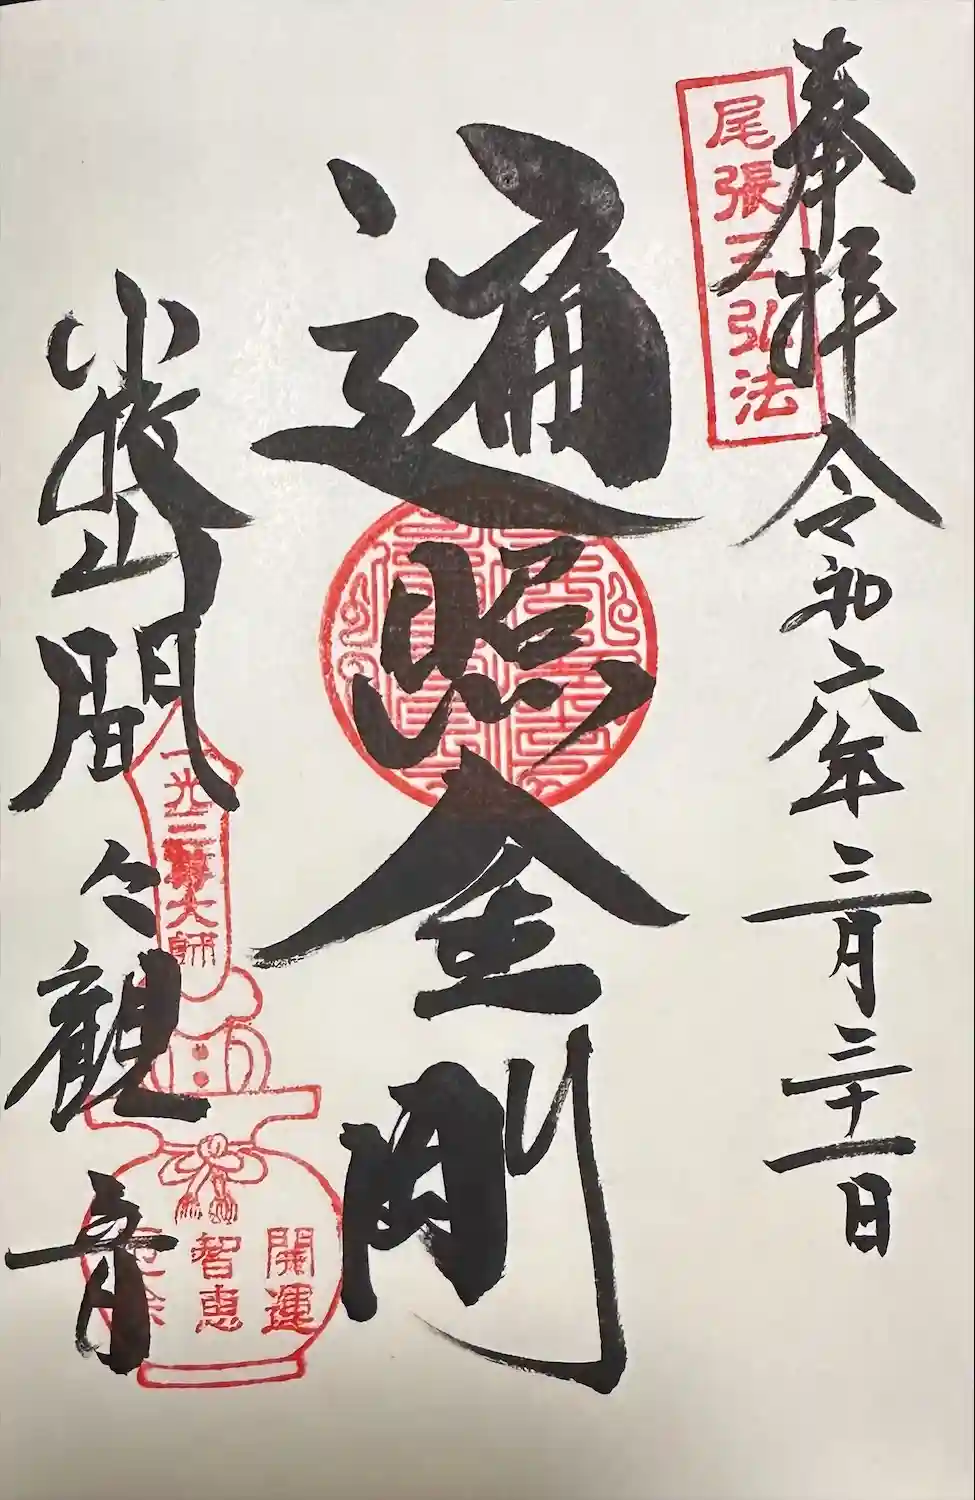 奉拝 令和六年 三月 三十一日
尾張三弘法
遍照金剛
小牧山 間々観音
一光三尊大師
開運
智恵